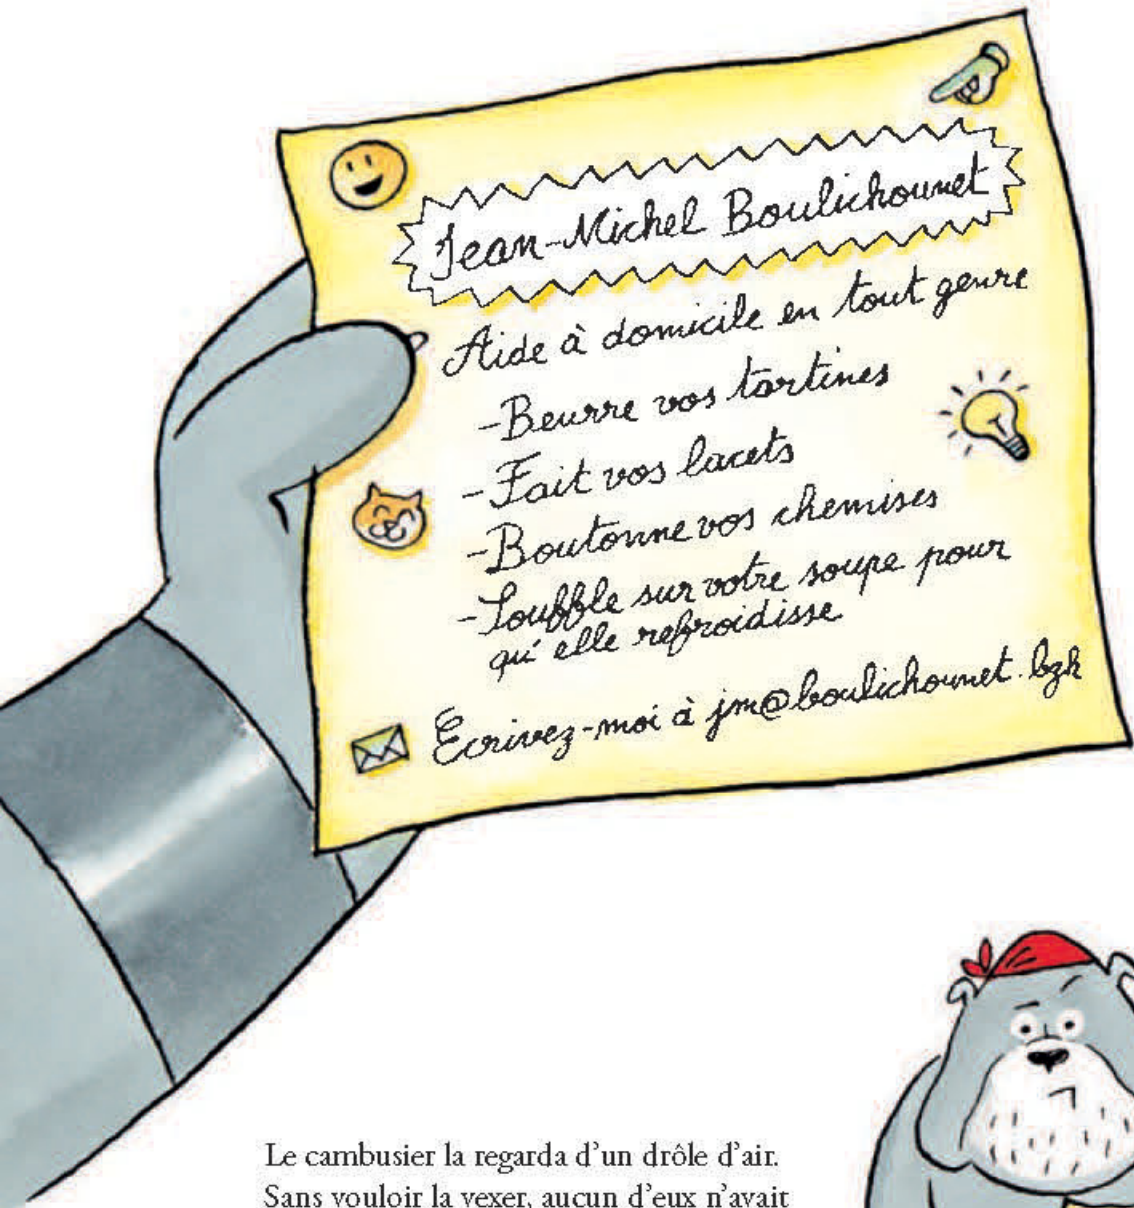 Jean-Michel Boulichounet
Aide à domicile en tout genre
-Beurre vos tartines
-Fait vos lacets
-Boutonne vos chemises
-Souffle sur votre soupe pour
qu'elle refroidisse
Ecrivez-moi à jm@boulichounet.bzh
Le cambusier la regarda d'un drôle d'air.
Sans vouloir la vexer, aucun d'eux n'avait